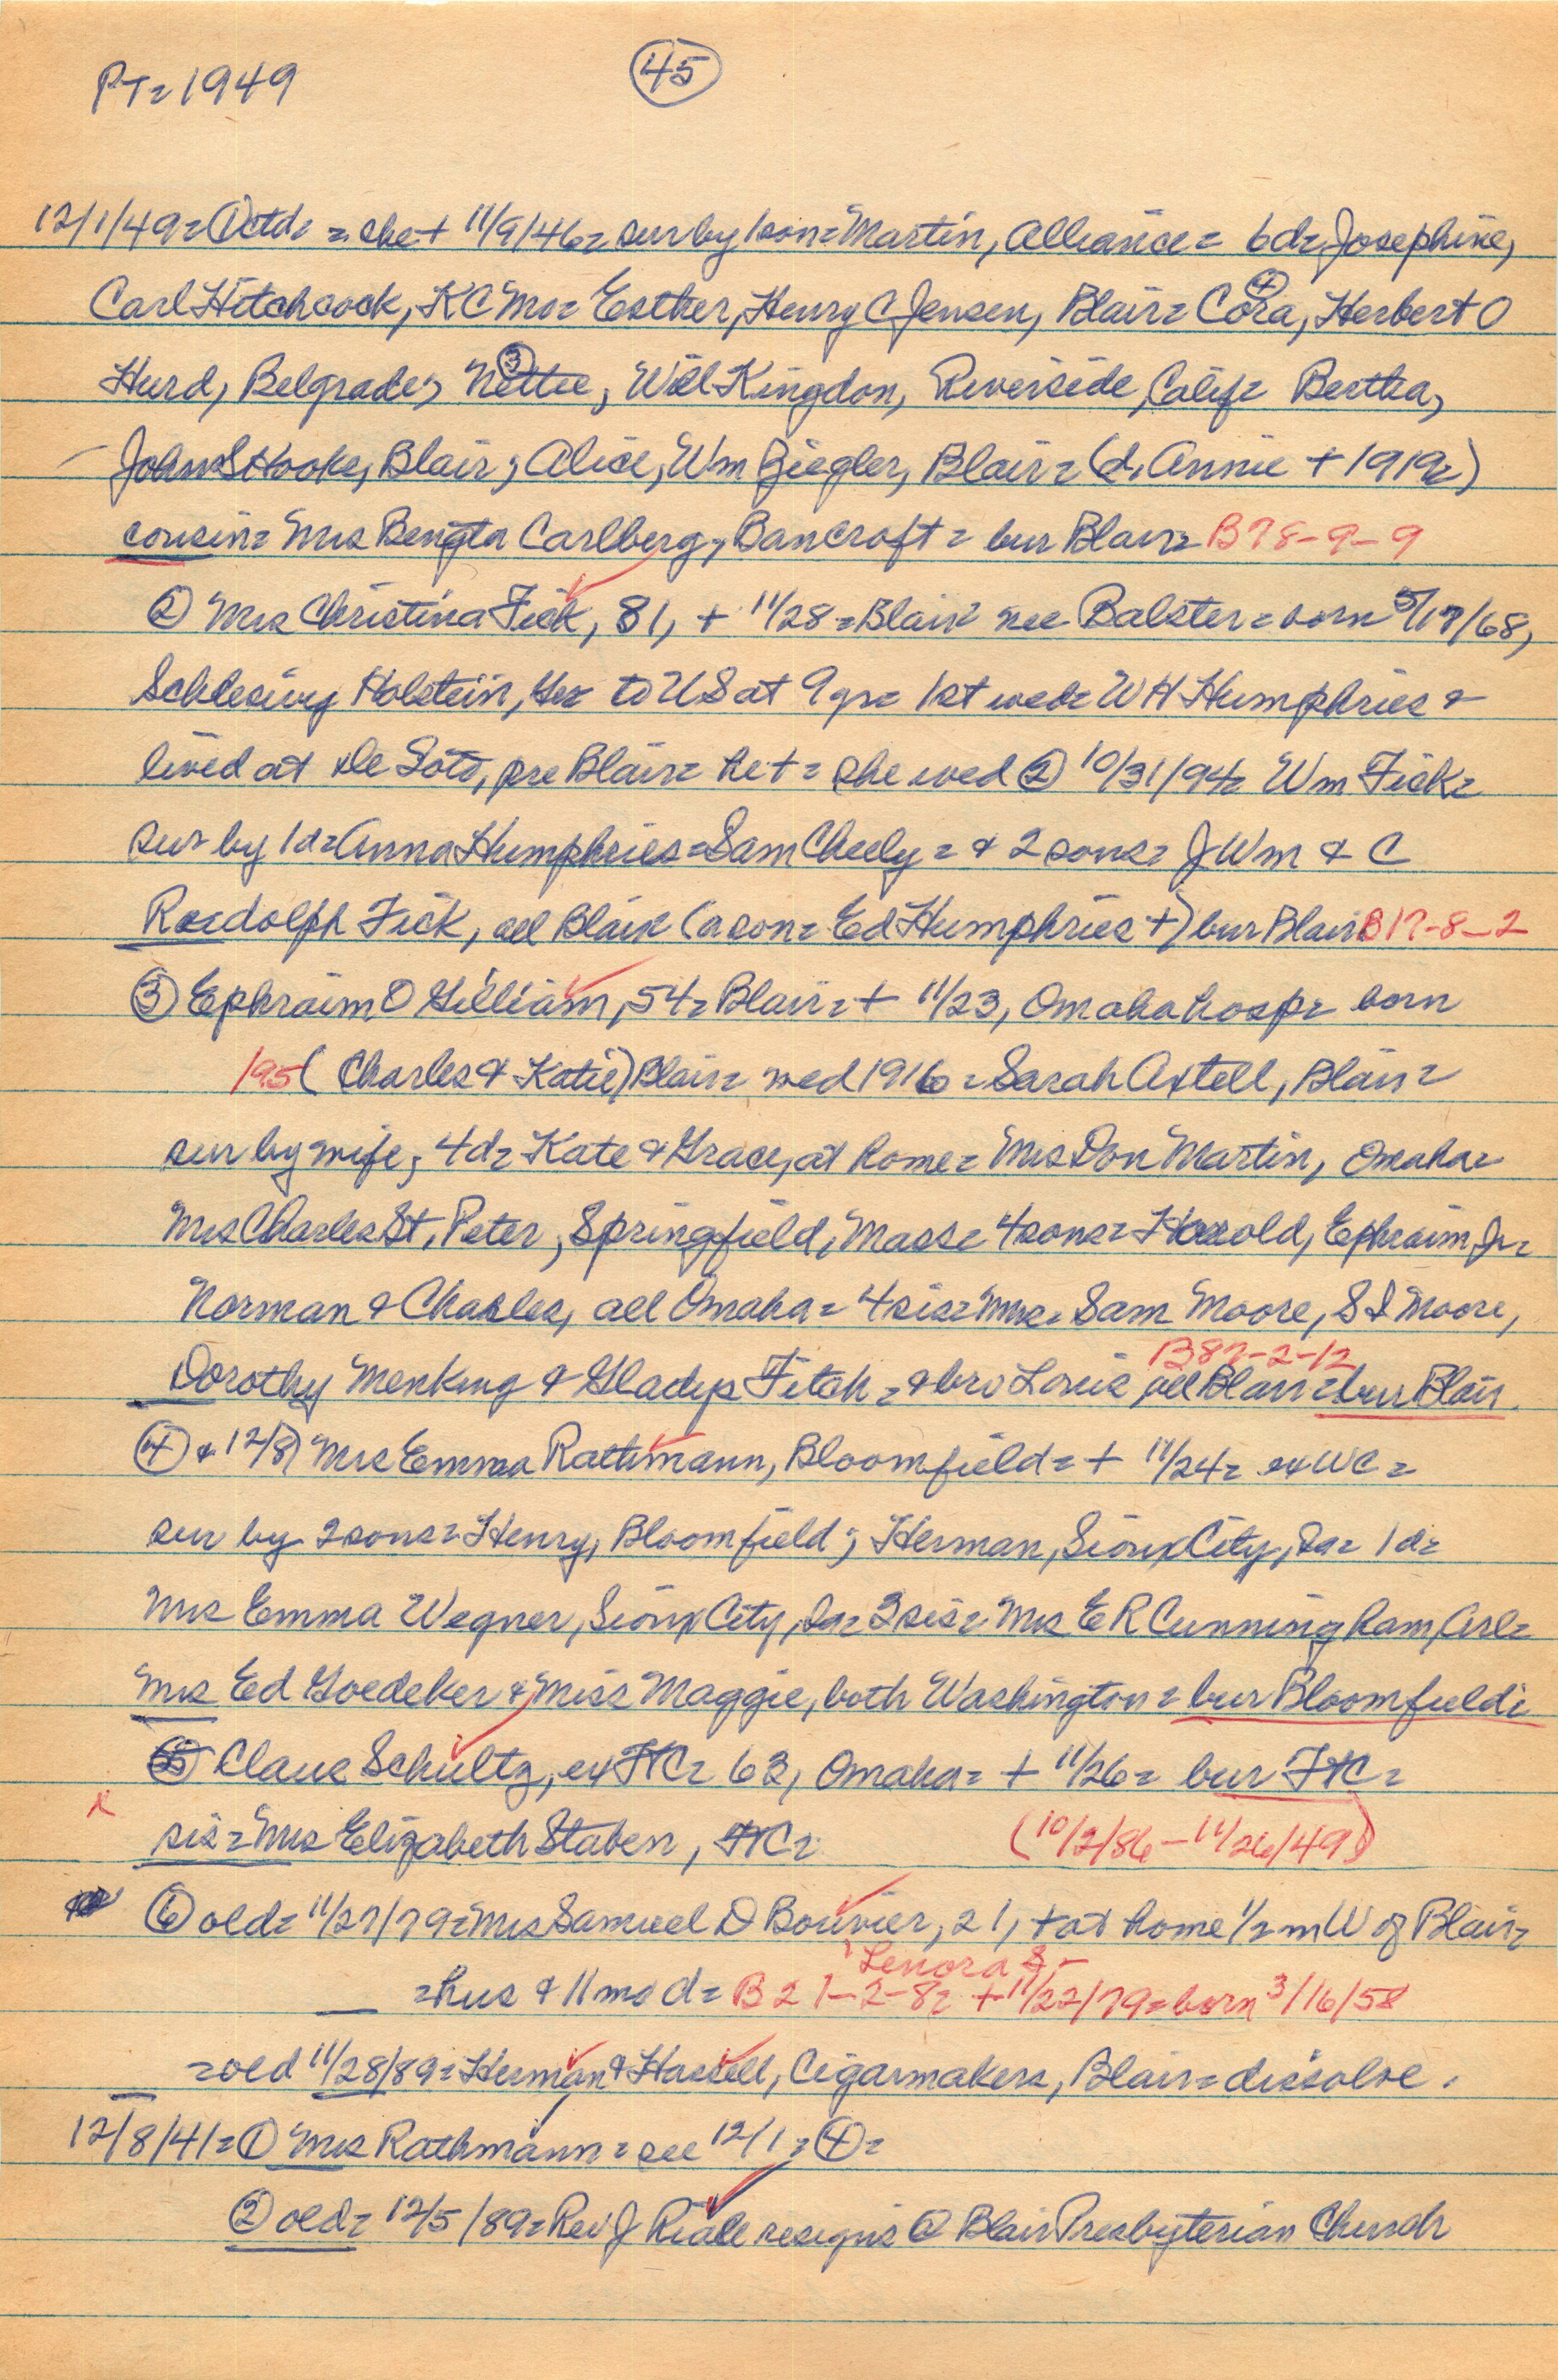 PT = 1949
45
12/1/49 = ① ctd = = she + 11/9/46 = sur by 1 son = Martin, Alliance = 6d = Josephine,
Carl Hitchcock, KC Mo = Esther, Henry C Jensen, Blair = Cora, ④ Herbert O
Hurd, Belgrade, Nettie, ③ Will Kingdon, Riverside, Calif = Bertha,
John S Hooke, Blair; Alice, Wm Ziegler, Blair = (d, Annie + 1919 =)
cousin = Mrs Bengta Carlberg, Bancroft = bur Blair = B78-9-9
② Mrs Christina Fick, 81, + 11/28 = Blair nee Balster = born 5/17/68,
Schleswig Holstein, Ger to US at 9 yr = 1st wed = WH Humphries &
lived at De Soto, pre Blair = he + = she wed ② 10/31/94 = Wm Fick =
sur by 1 d = Anna Humphries = Sam Cheely = & 2 sons = J Wm & C
Rudolph Fick, all Blair (a son = Ed Humphries +) bur Blair B17-8-2
③ Ephraim O Gilliam, 54 = Blair = + 11/23, Omaha hosp = born
195 (Charles & Katie) Blair = wed 1916 = Sarah Axtell, Blair =
sur by wife; 4d = Kate & Grace, at home = Mrs Don Martin, Omaha =
Mrs Charles St. Peter, Springfield, Mass = 4 sons = Harold, Ephraim Jr =
Norman & Charles, all Omaha = 4 sis = Mrs = Sam Moore, S I Moore,
B87-2-12
Dorothy Menking & Gladys Fitch = & bro Louis all Blair = bur Blair.
④ & 12/8) Mrs Emma Rathmann, Bloomfield = + 11/24 = ex WC =
sur by 2 sons = Henry, Bloomfield; Herman, Sioux City, Ia = 1 d =
Mrs Emma Wegner, Sioux City, Ia = 3 sis = Mrs E R Cunningham, Arl =
Mrs Ed Goedeker & Miss Maggie, both Washington = bur Bloomfield =
⑤ Claus Schultz, ex FtC = 63, Omaha = + 11/26 = bur FtC =
sis = Mrs Elizabeth Staben, FtC = (10/2/86 - 11/26/49)
⑥ old = 11/27/79 = Mrs Samuel D Bouvier, 21, + at home 1/2 m W of Blair =
Lenora S -
= hus & 11 mo d = B21-2-8 = + 11/22/79 = born 3/16/58
= old 11/28/89 = Herman & Hassell, Cigarmakers, Blair = dissolve.
12/8/41 = ① Mrs Rathmann = see 12/1 = ④ =
② old = 12/5/89 = Rev J Riale resigns @ Blair Presbyterian Church